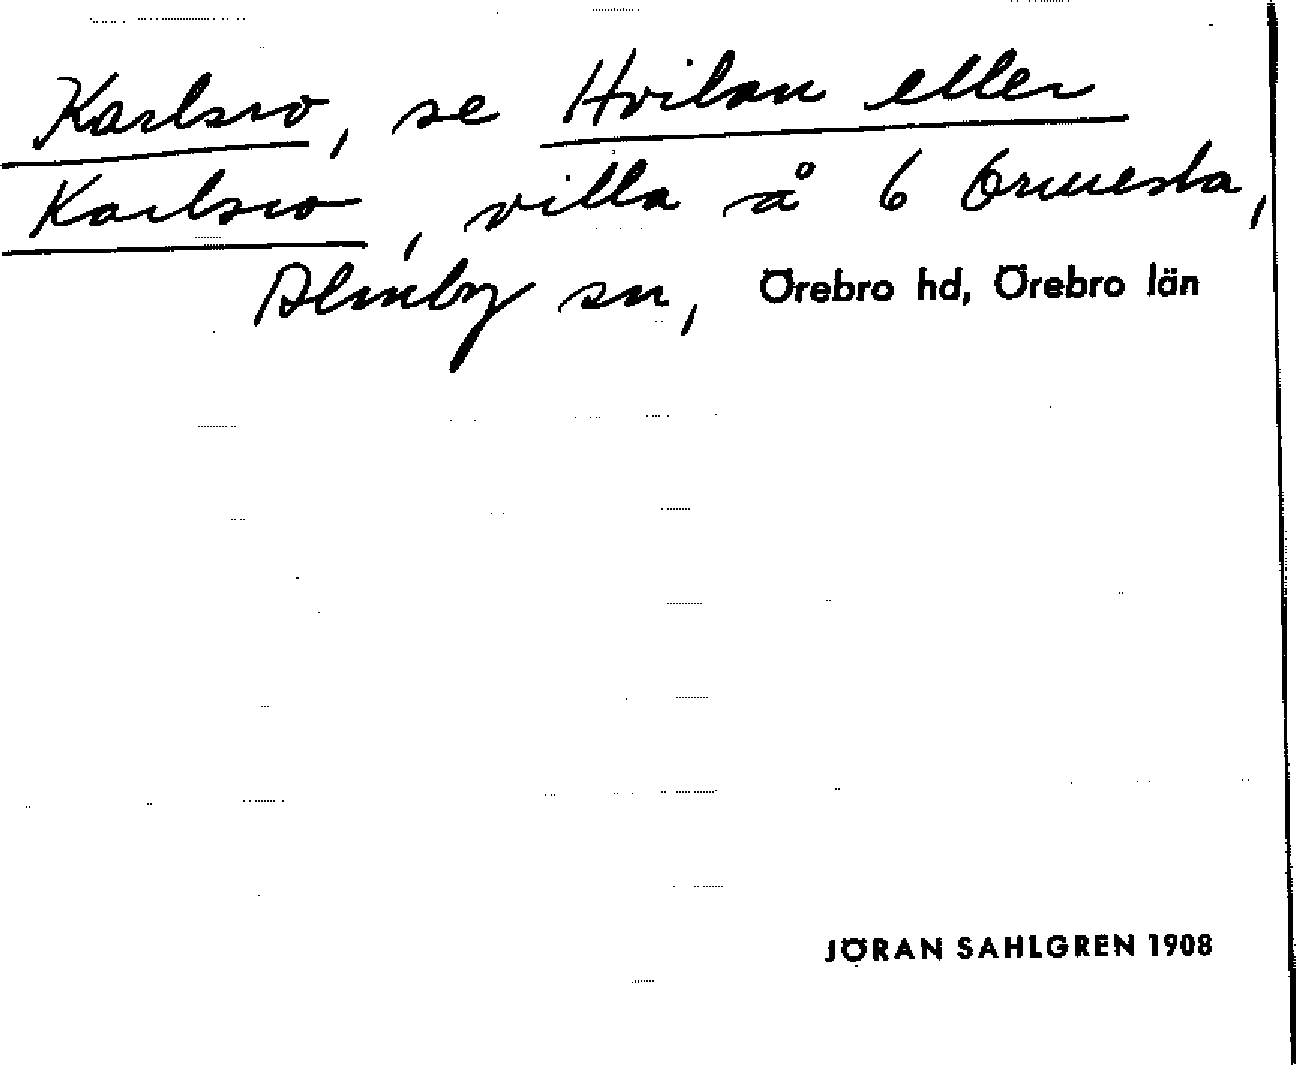 Karlsro, se Hvilan eller
Karlsro, villa å 6 Ormesta,
Almby sn, Örebro hd, Örebro län
JÖRAN SAHLGREN 1908